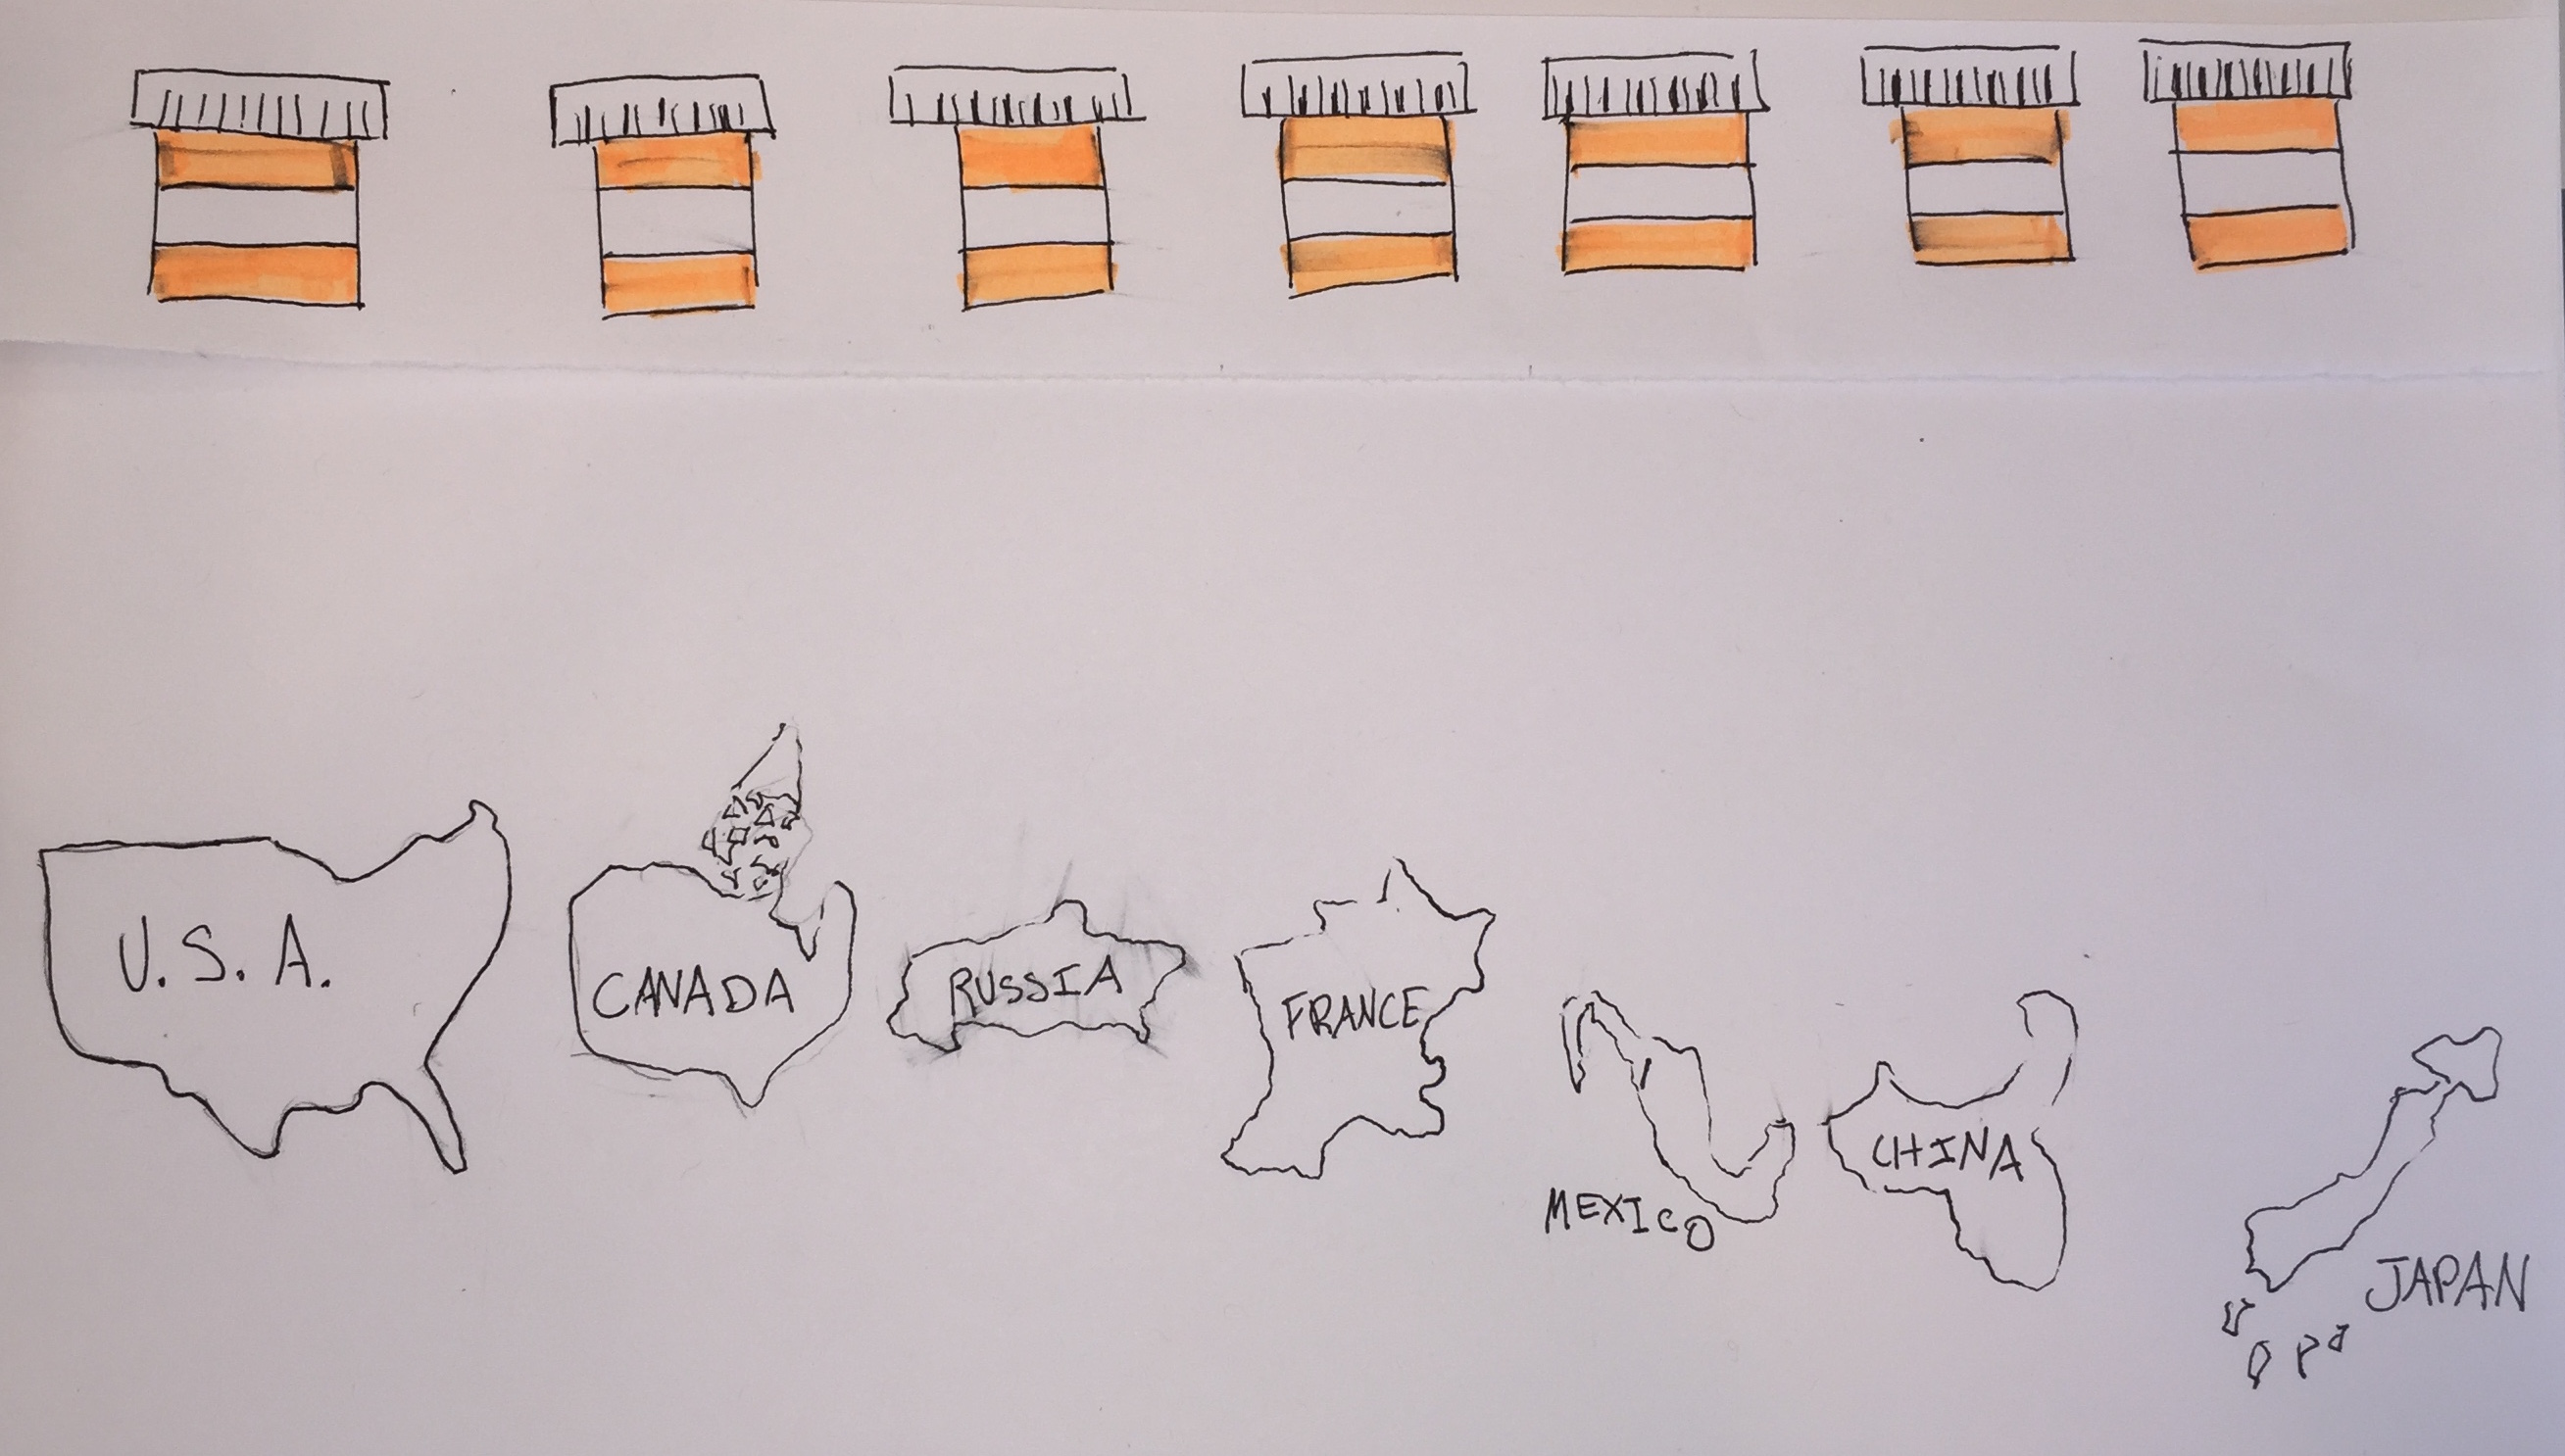 U.S.A.
CANADA
RUSSIA
FRANCE
MEXICO
CHINA
JAPAN